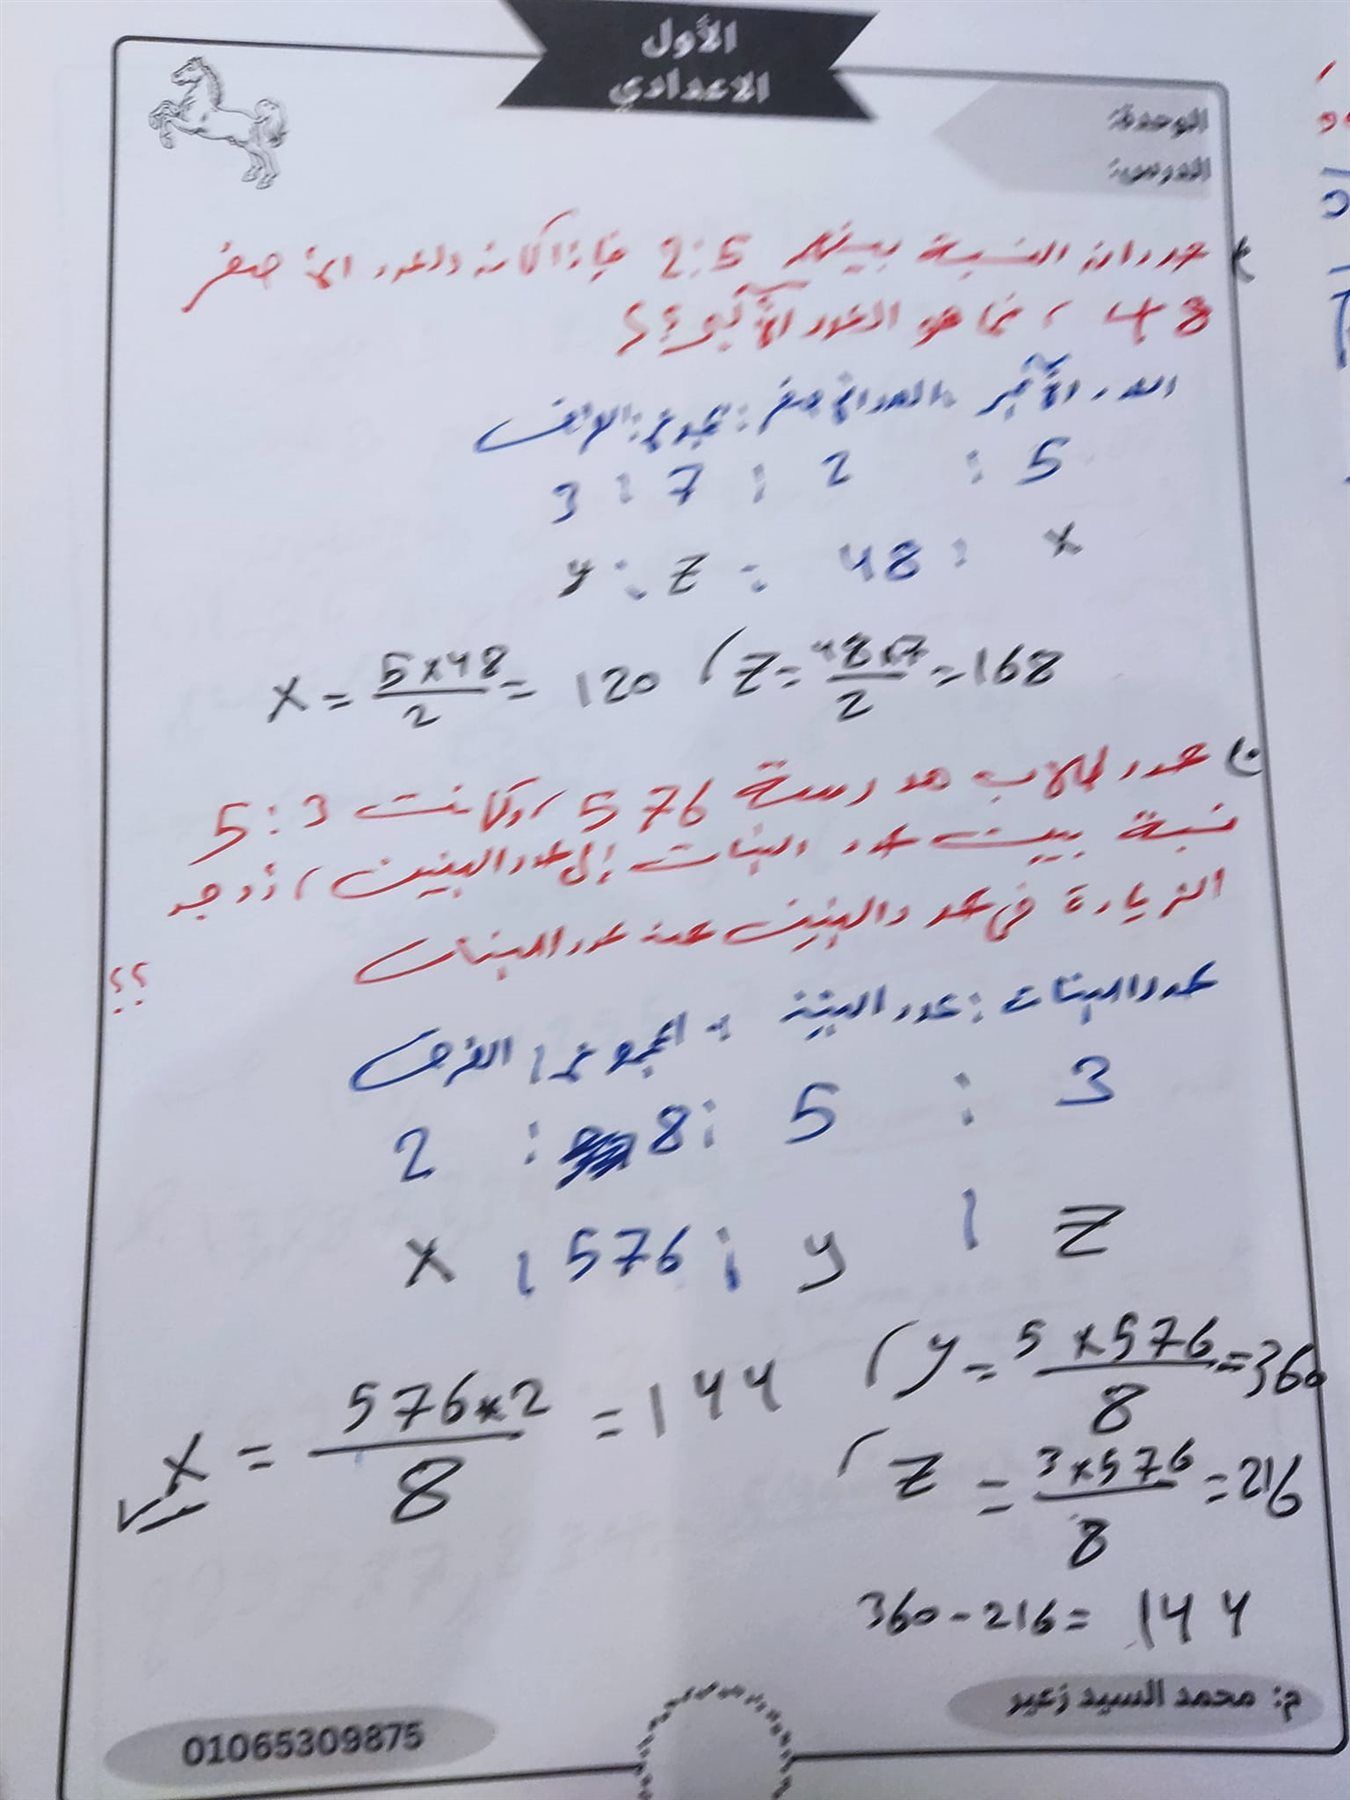 الأول
الاعدادي
الوحدة:
الدرس:
عددان النسبة بينهم 2:5 فإذا كان العدد الأصغر
48 ، فما هو العدد الأكبر؟؟
العدد الأكبر : العدد الأصغر : مجموعهم : الفرق
5 : 2 : 7 : 3
x : 48 : z : y
x = 5×48/2 = 120 ( z = 48×7/2 = 168
عدد طلاب مدرسة 576 ، وكانت 5:3
نسبة بين عدد البنات إلى عدد البنين ، أوجد
الزيادة في عدد البنين عن عدد البنات
؟؟
عدد البنات : عدد البنين : المجموع : الفرق
3 : 5 : 8 : 2
z : y : 576 : x
x = 576×2/8 = 144 ( y = 5×576/8 = 360
( z = 3×576/8 = 216
360-216= 144
م: محمد السيد زعير
01065309875